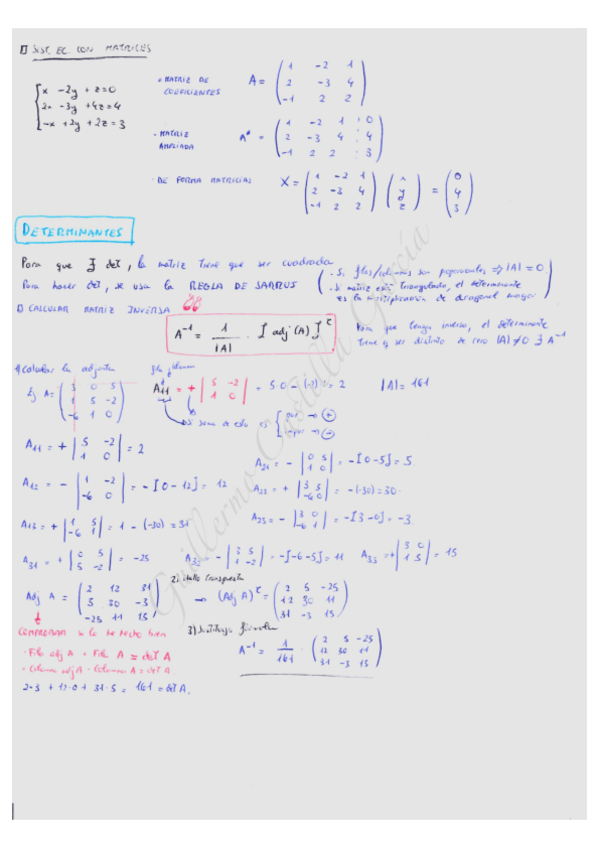 1) SIST. EC. CON MATRICES
{ x - 2y + z = 0
2x - 3y + 4z = 4
-x + 2y + 2z = 3
· MATRIZ DE COEFICIENTES A = ( 1 -2 1
2 -3 4
-1 2 2 )
· MATRIZ AMPLIADA A* = ( 1 -2 1 : 0
2 -3 4 : 4
-1 2 2 : 3 )
· DE FORMA MATRICIAS X = ( 1 -2 1
2 -3 4
-1 2 2 ) ( x
y
z ) = ( 0
4
3 )
DETERMINANTES
Para que ∃ det, la matriz tiene que ser cuadrada
Para hacer det, se usa la REGLA DE SARRUS
- Si filas/columnas son proporcionales => |A| = 0
- Si matriz está triangulada, el determinante
es la multiplicación de diagonal mayor
1) CALCULAR MATRIZ INVERSA
A⁻¹ = 1 / |A| · [ adj (A) ]ᵗ
Para que tenga inversa, el determinante
tiene q ser distinto de cero |A| ≠ 0 ∃ A⁻¹
1) Calcular la adjunta
Ej A = ( 3 0 5
1 5 -2
-6 1 0 )
A11 = + | 5 -2
1 0 | = 5·0 - (-2) = 2
|A| = 161
Si suma de esto es { par → +
impar → -
A11 = + | 5 -2
1 0 | = 2
A21 = - | 0 5
1 0 | = -[0-5] = 5
A12 = - | 1 -2
-6 0 | = -[0-12] = 12
A22 = + | 3 5
-6 0 | = -(-30) = 30
A13 = + | 1 5
-6 1 | = 1 - (-30) = 31
A23 = - | 3 0
-6 1 | = -[3-0] = -3
A31 = + | 0 5
5 -2 | = -25
A32 = - | 3 5
1 -2 | = -[-6-5] = 11
A33 = + | 3 0
1 5 | = 15
Adj A = ( 2 12 31
5 30 -3
-25 11 15 )
2) Hallo transpuesta
→ (Adj A)ᵗ = ( 2 5 -25
12 30 11
31 -3 15 )
COMPROBAR si lo he hecho bien
· Fila adj A · Fila A = det A
· Columna adj A · Columna A = det A
2·3 + 12·0 + 31·5 = 161 = det A.
3) Sustituyo fórmula
A⁻¹ = 1/161 · ( 2 5 -25
12 30 11
31 -3 15 )
Guillermo Castilla García